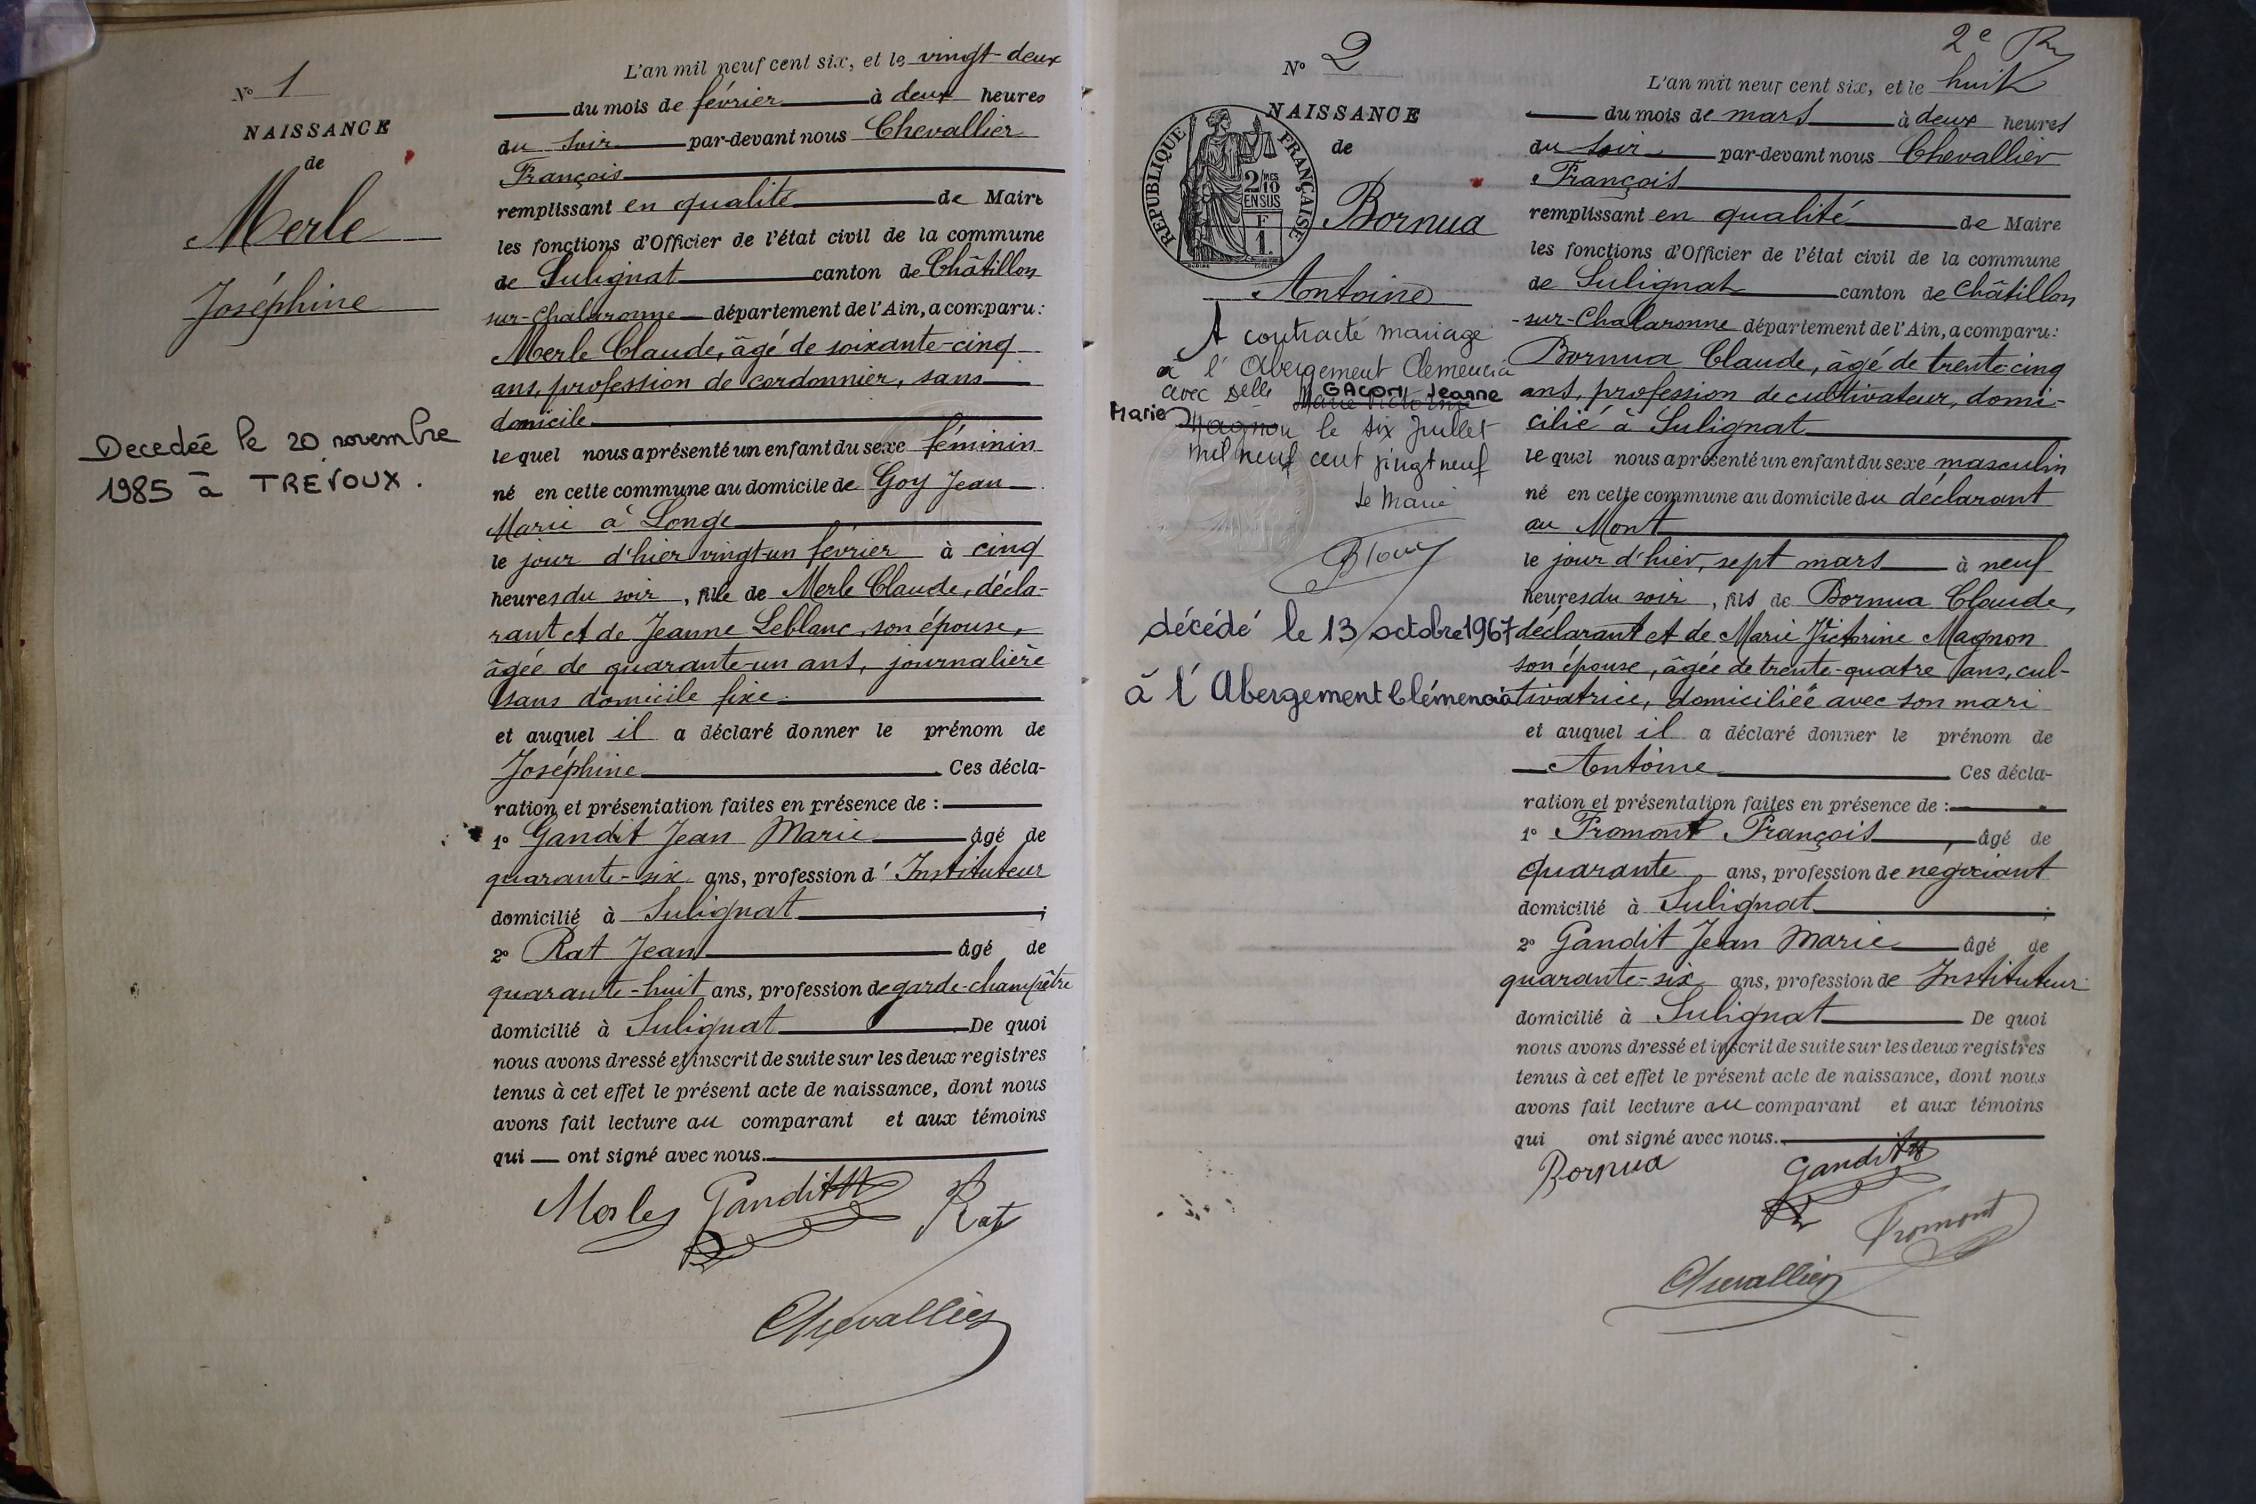 N° 1
NAISSANCE
de
Merle
Joséphine
Decedée le 20 novembre
1985 à TREVOUX.
L'an mil neuf cent six, et le vingt-deux
du mois de février à deux heures
du soir par-devant nous Chevallier
François
remplissant en qualité de Maire
les fonctions d'Officier de l'état civil de la commune
de Sulignat canton de Châtillon
sur-Chalaronne département de l'Ain, a comparu:
Merle Claude, âgé de soixante-cinq
ans, profession de cordonnier, sans
domicile
lequel nous a présenté un enfant du sexe féminin
né en cette commune au domicile de Goy Jean
Marie à Longe
le jour d'hier vingt-un février à cinq
heures du soir, fille de Merle Claude, décla-
rant et de Jeanne Leblanc, son épouse,
âgée de quarante-un ans, journalière
sans domicile fixe
et auquel il a déclaré donner le prénom de
Joséphine Ces décla-
ration et présentation faites en présence de :
1° Gandit Jean Marie âgé de
quarante-six ans, profession d'Instituteur
domicilié à Sulignat ;
2° Rat Jean âgé de
quarante-huit ans, profession de garde-champêtre
domicilié à Sulignat De quoi
nous avons dressé et inscrit de suite sur les deux registres
tenus à cet effet le présent acte de naissance, dont nous
avons fait lecture au comparant et aux témoins
qui ont signé avec nous.
Merle Gandit Rat
Chevallier
2e
N° 2
NAISSANCE
de
RÉPUBLIQUE FRANÇAISE
2/10 MES
EN SUS
F
1.
Bornua
Antoine
A contracté mariage
à l'Abergement Clemencia
avec Delle GACON Jeanne
Marie Marie Victorine
Magnon le six Juillet
mil neuf cent vingt neuf
Le Maire
décédé le 13 octobre 1967
à l'Abergement Clémencia
L'an mil neuf cent six, et le huit
du mois de mars à deux heures
du soir par-devant nous Chevallier
François
remplissant en qualité de Maire
les fonctions d'Officier de l'état civil de la commune
de Sulignat canton de Châtillon
-sur-Chalaronne département de l'Ain, a comparu:
Bornua Claude, âgé de trente-cinq
ans, profession de cultivateur, domi-
cilié à Sulignat
lequel nous a présenté un enfant du sexe masculin
né en cette commune au domicile du déclarant
au Mont
le jour d'hier, sept mars à neuf
heures du soir, fils de Bornua Claude,
déclarant et de Marie Victorine Magnon
son épouse, âgée de trente-quatre ans, cul-
tivatrice, domiciliée avec son mari
et auquel il a déclaré donner le prénom de
Antoine Ces décla-
ration et présentation faites en présence de :
1° Fromont François, âgé de
quarante ans, profession de négociant
domicilié à Sulignat ;
2° Gandit Jean Marie âgé de
quarante-six ans, profession de Instituteur
domicilié à Sulignat De quoi
nous avons dressé et inscrit de suite sur les deux registres
tenus à cet effet le présent acte de naissance, dont nous
avons fait lecture au comparant et aux témoins
qui ont signé avec nous.
Bornua Gandit
Fromont
Chevallier